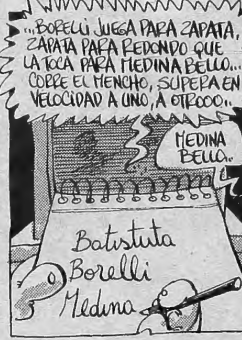 ...BORELLI JUEGA PARA ZAPATA,
ZAPATA PARA REDONDO QUE
LA TOCA PARA MEDINA BELLO...
CORRE EL MENCHO, SUPERA EN
VELOCIDAD A UNO, A OTROOO..
MEDINA
BELLO..
Batistuta
Borelli
Medina